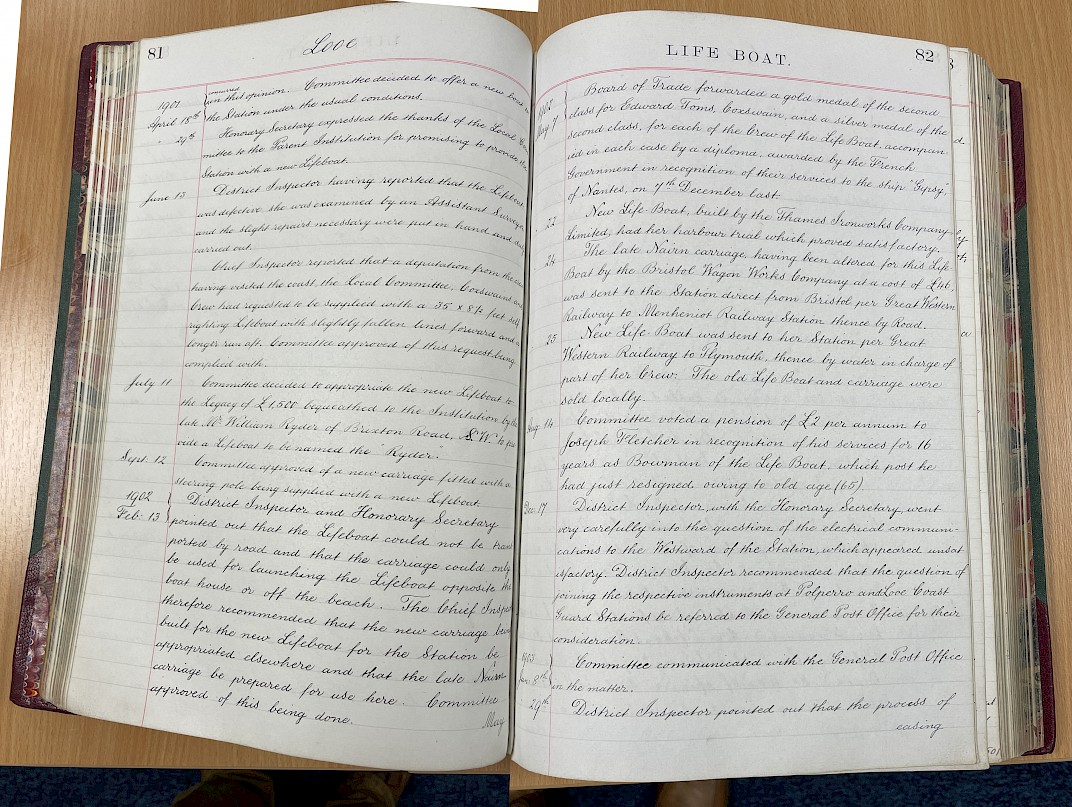 81
Looe
1901
April 18th
concurred
in this opinion. Committee decided to offer a new boat
the Station under the usual conditions.
" 29th
Honorary Secretary expressed the thanks of the Local Com
mittee to the Parent Institution for promising to provide the
Station with a new Lifeboat.
June 13
District Inspector having reported that the Lifeboat
was defective she was examined by an Assistant Surveyor
and the slight repairs necessary were put in hand and
carried out.
Chief Inspector reported that a deputation from the
having visited the coast, the Local Committee, Coxswains and
Crew had requested to be supplied with a 35' x 8½ feet self
righting Lifeboat with slightly fallen lines forward and a
longer run aft. Committee approved of this request being
complied with.
July 11
Committee decided to appropriate the new Lifeboat to
the Legacy of £1,500 bequeathed to the Institution by the
late Mr William Ryder of Brixton Road, S.W. to pro
vide a Lifeboat to be named the "Ryder".
Sept. 12
Committee approved of a new carriage fitted with a
steering pole being supplied with a new Lifeboat.
1902
Feb: 13
District Inspector and Honorary Secretary
pointed out that the Lifeboat could not be trans
ported by road and that the carriage could only
be used for launching the Lifeboat opposite the
boat house or off the beach. The Chief Inspec
therefore recommended that the new carriage being
built for the new Lifeboat for the Station be
appropriated elsewhere and that the late Nairn
carriage be prepared for use here. Committee
approved of this being done.
May
LIFE BOAT.
82
1902
May 7
Board of Trade forwarded a gold medal of the second
class for Edward Toms, Coxswain, and a silver medal of the
second class, for each of the Crew of the Life Boat, accompan
ied in each case by a diploma, awarded by the French
Government in recognition of their services to the ship "Gipsy"
of Nantes, on 7th December last.
" 22
New Life-Boat, built by the Thames Ironworks Company
Limited, had her harbour trial which proved satisfactory.
24
The late Nairn carriage, having been altered for this Life-
Boat by the Bristol Wagon Works Company at a cost of £46,
was sent to the Station direct from Bristol per Great Western
Railway to Menheniot Railway Station thence by Road.
25
New Life-Boat was sent to her Station per Great
Western Railway to Plymouth, thence by water in charge of
part of her Crew. The old Life Boat and carriage were
sold locally.
Aug. 14
Committee voted a pension of £2 per annum to
Joseph Pletcher in recognition of his services for 16
years as Bowman of the Life Boat, which post he
had just resigned owing to old age (65)
Dec. 17
District Inspector, with the Honorary Secretary, went
very carefully into the question of the electrical communi-
cations to the Westward of the Station, which appeared unsat
isfactory. District Inspector recommended that the question of
joining the respective instruments at Polperro and Looe Coast
Guard Stations be referred to the General Post Office for their
consideration.
1903
Jan. 8th
Committee communicated with the General Post Office
in the matter.
29th
District Inspector pointed out that the process of
easing